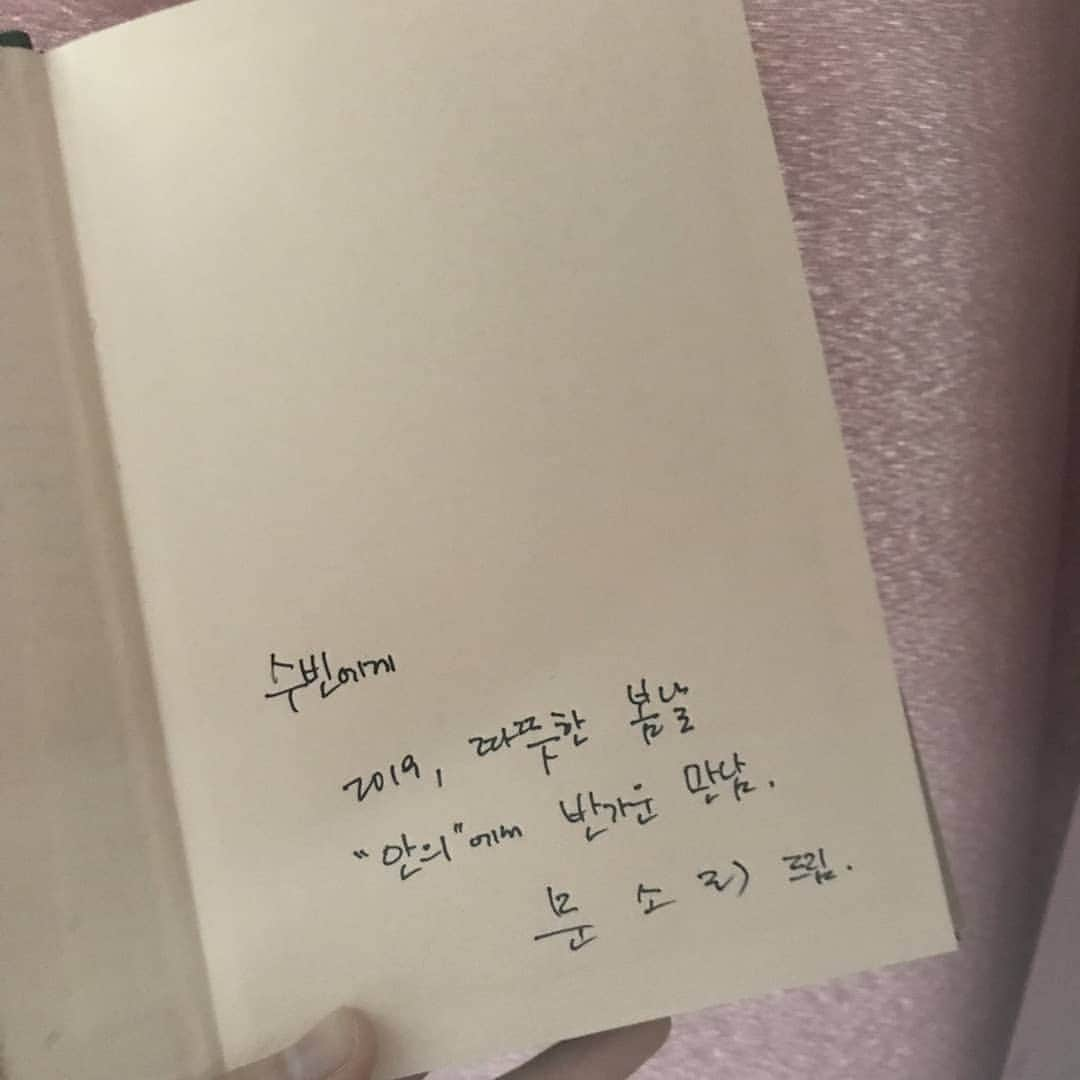 수빈에게
2019, 따뜻한 봄날
"안의"에서 반가운 만남.
문 소 리 드림.